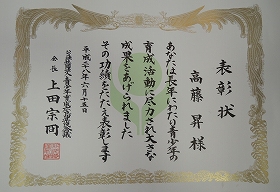 表彰状
高藤 昇 様
あなたは長年にわたり青少年の
育成活動に尽力され大きな
成果をあげられました
その功績をたたえ表彰します
平成二十八年六月十五日
会長 上田宗冏